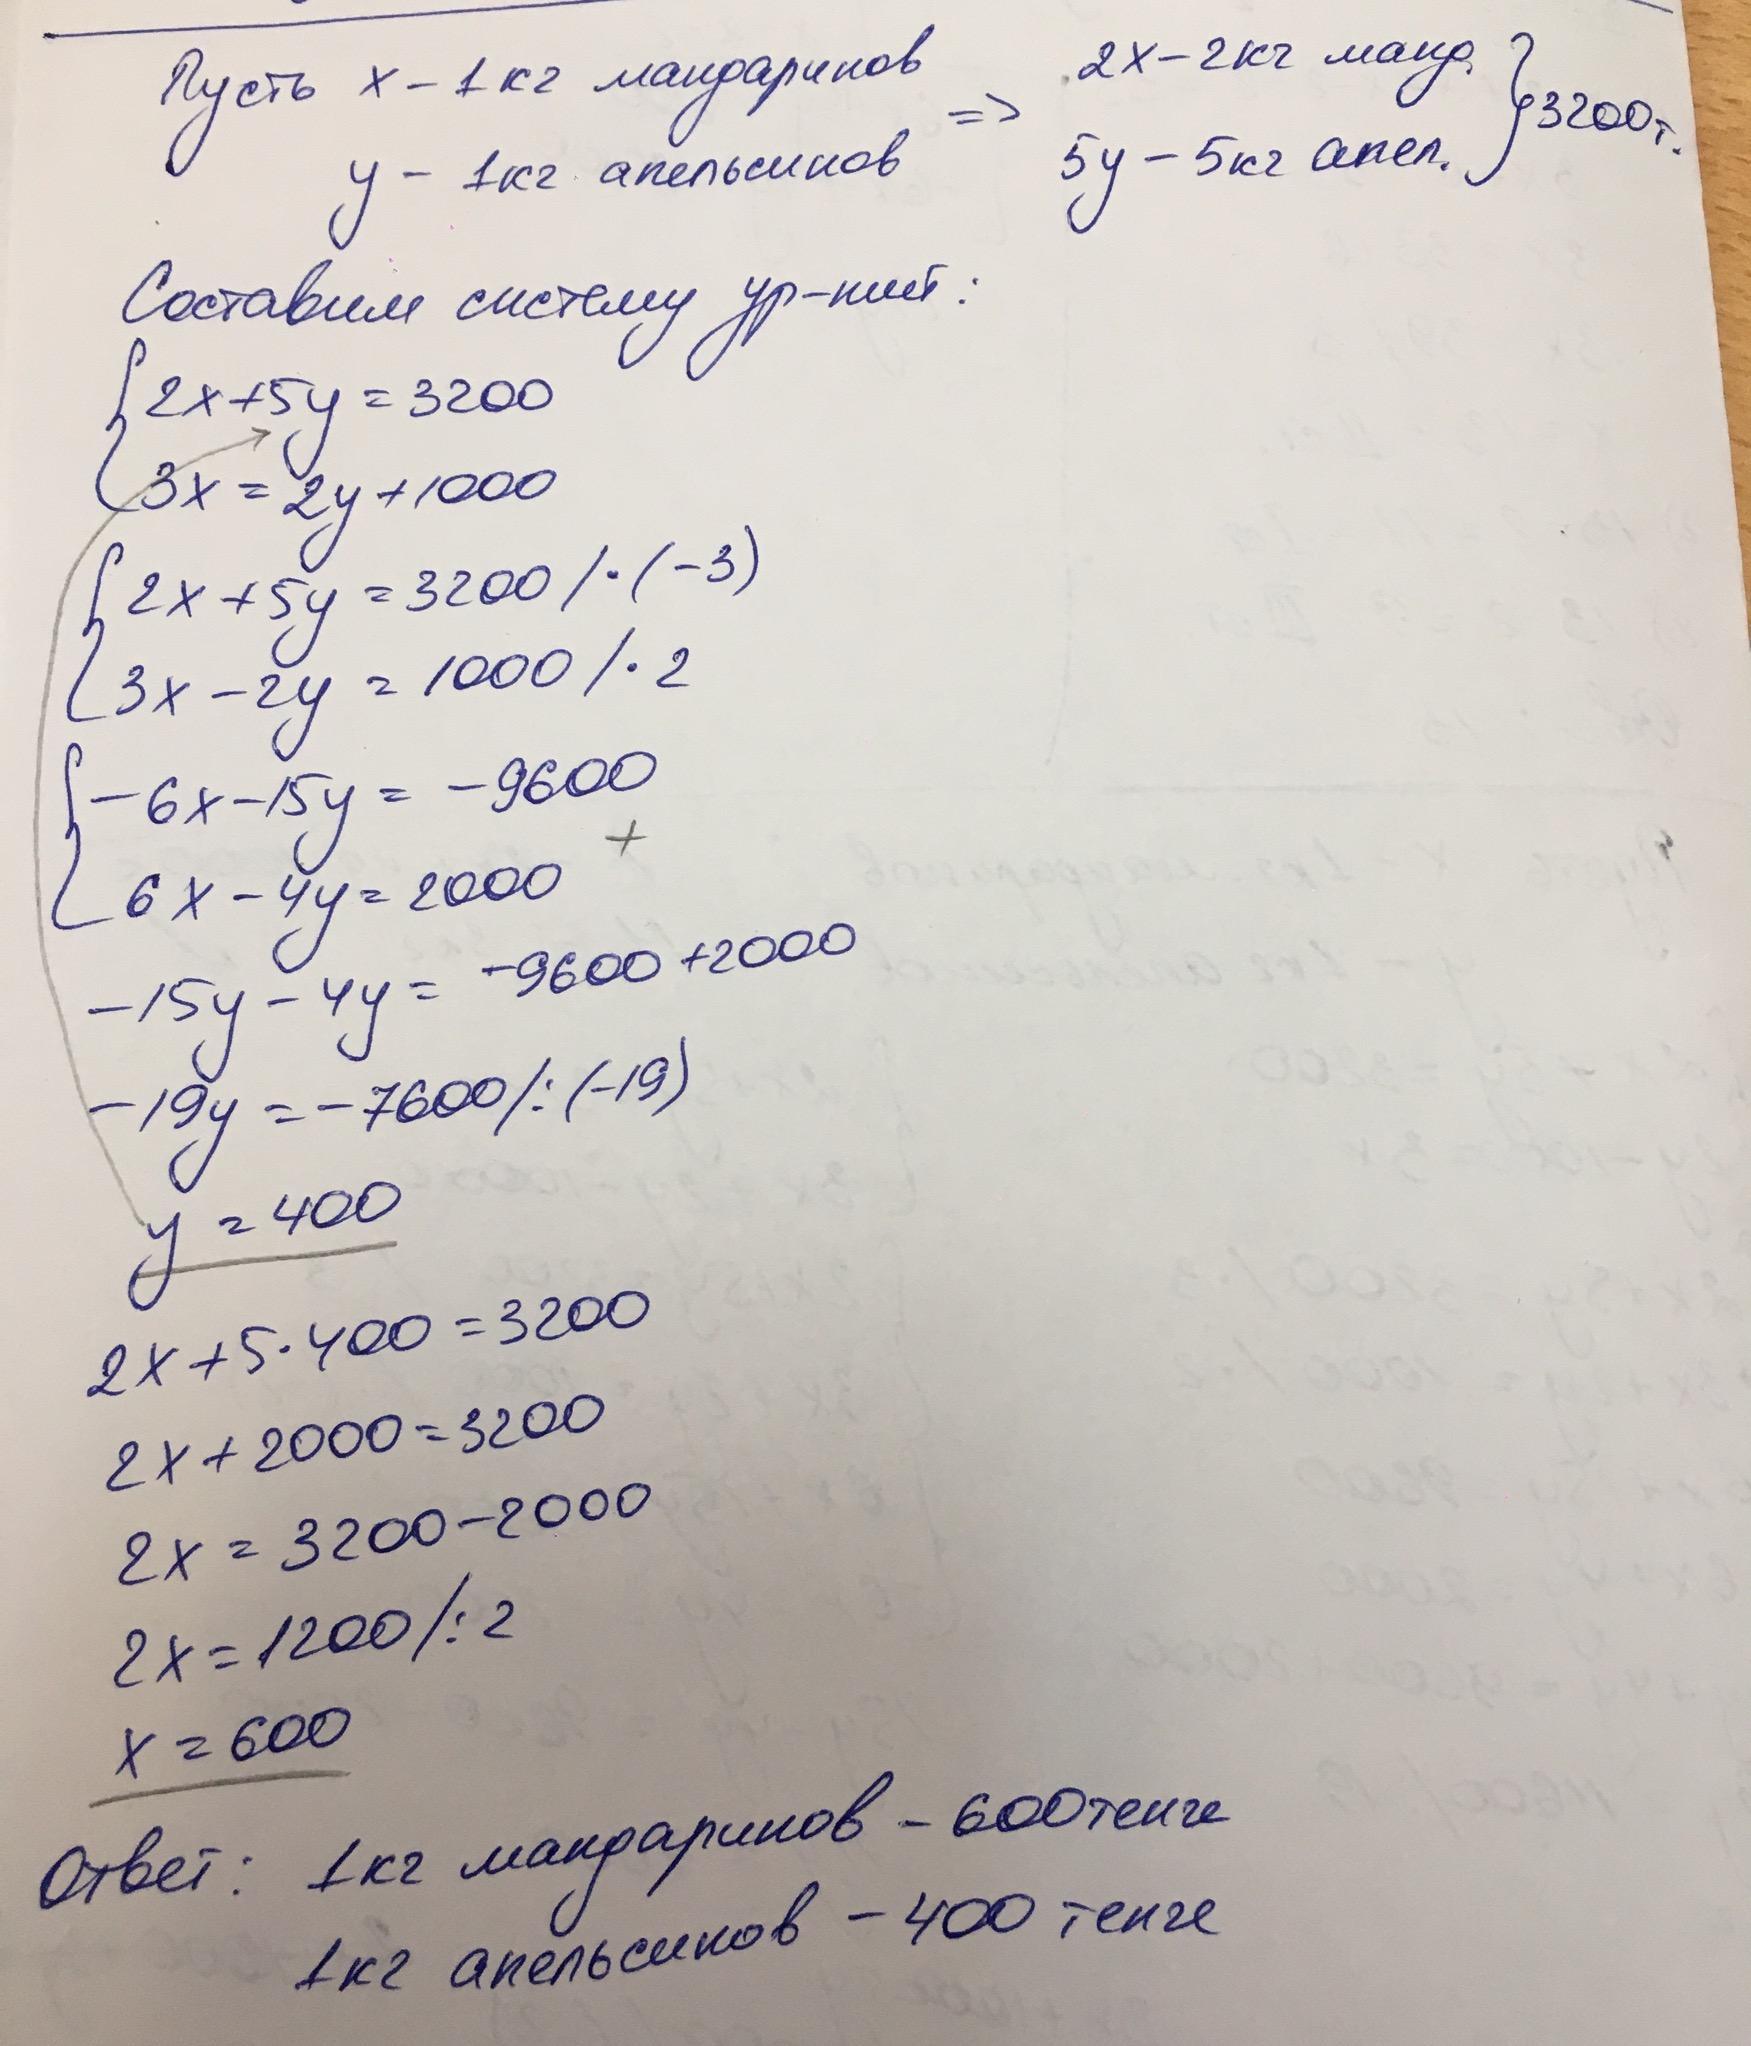 Пусть x – 1кг мандаринов => 2x – 2кг манд. } 3200т.
y – 1кг апельсинов 5y – 5кг апел.
Составим систему ур-ний:
{ 2x+5y=3200
3x=2y+1000
{ 2x+5y=3200 /·(-3)
3x-2y=1000 /·2
{ -6x-15y=-9600
+
6x-4y=2000
-15y-4y=-9600+2000
-19y=-7600/:(-19)
y=400
2x+5·400=3200
2x+2000=3200
2x=3200-2000
2x=1200/:2
x=600
Ответ: 1кг мандаринов – 600тенге
1кг апельсинов – 400 тенге